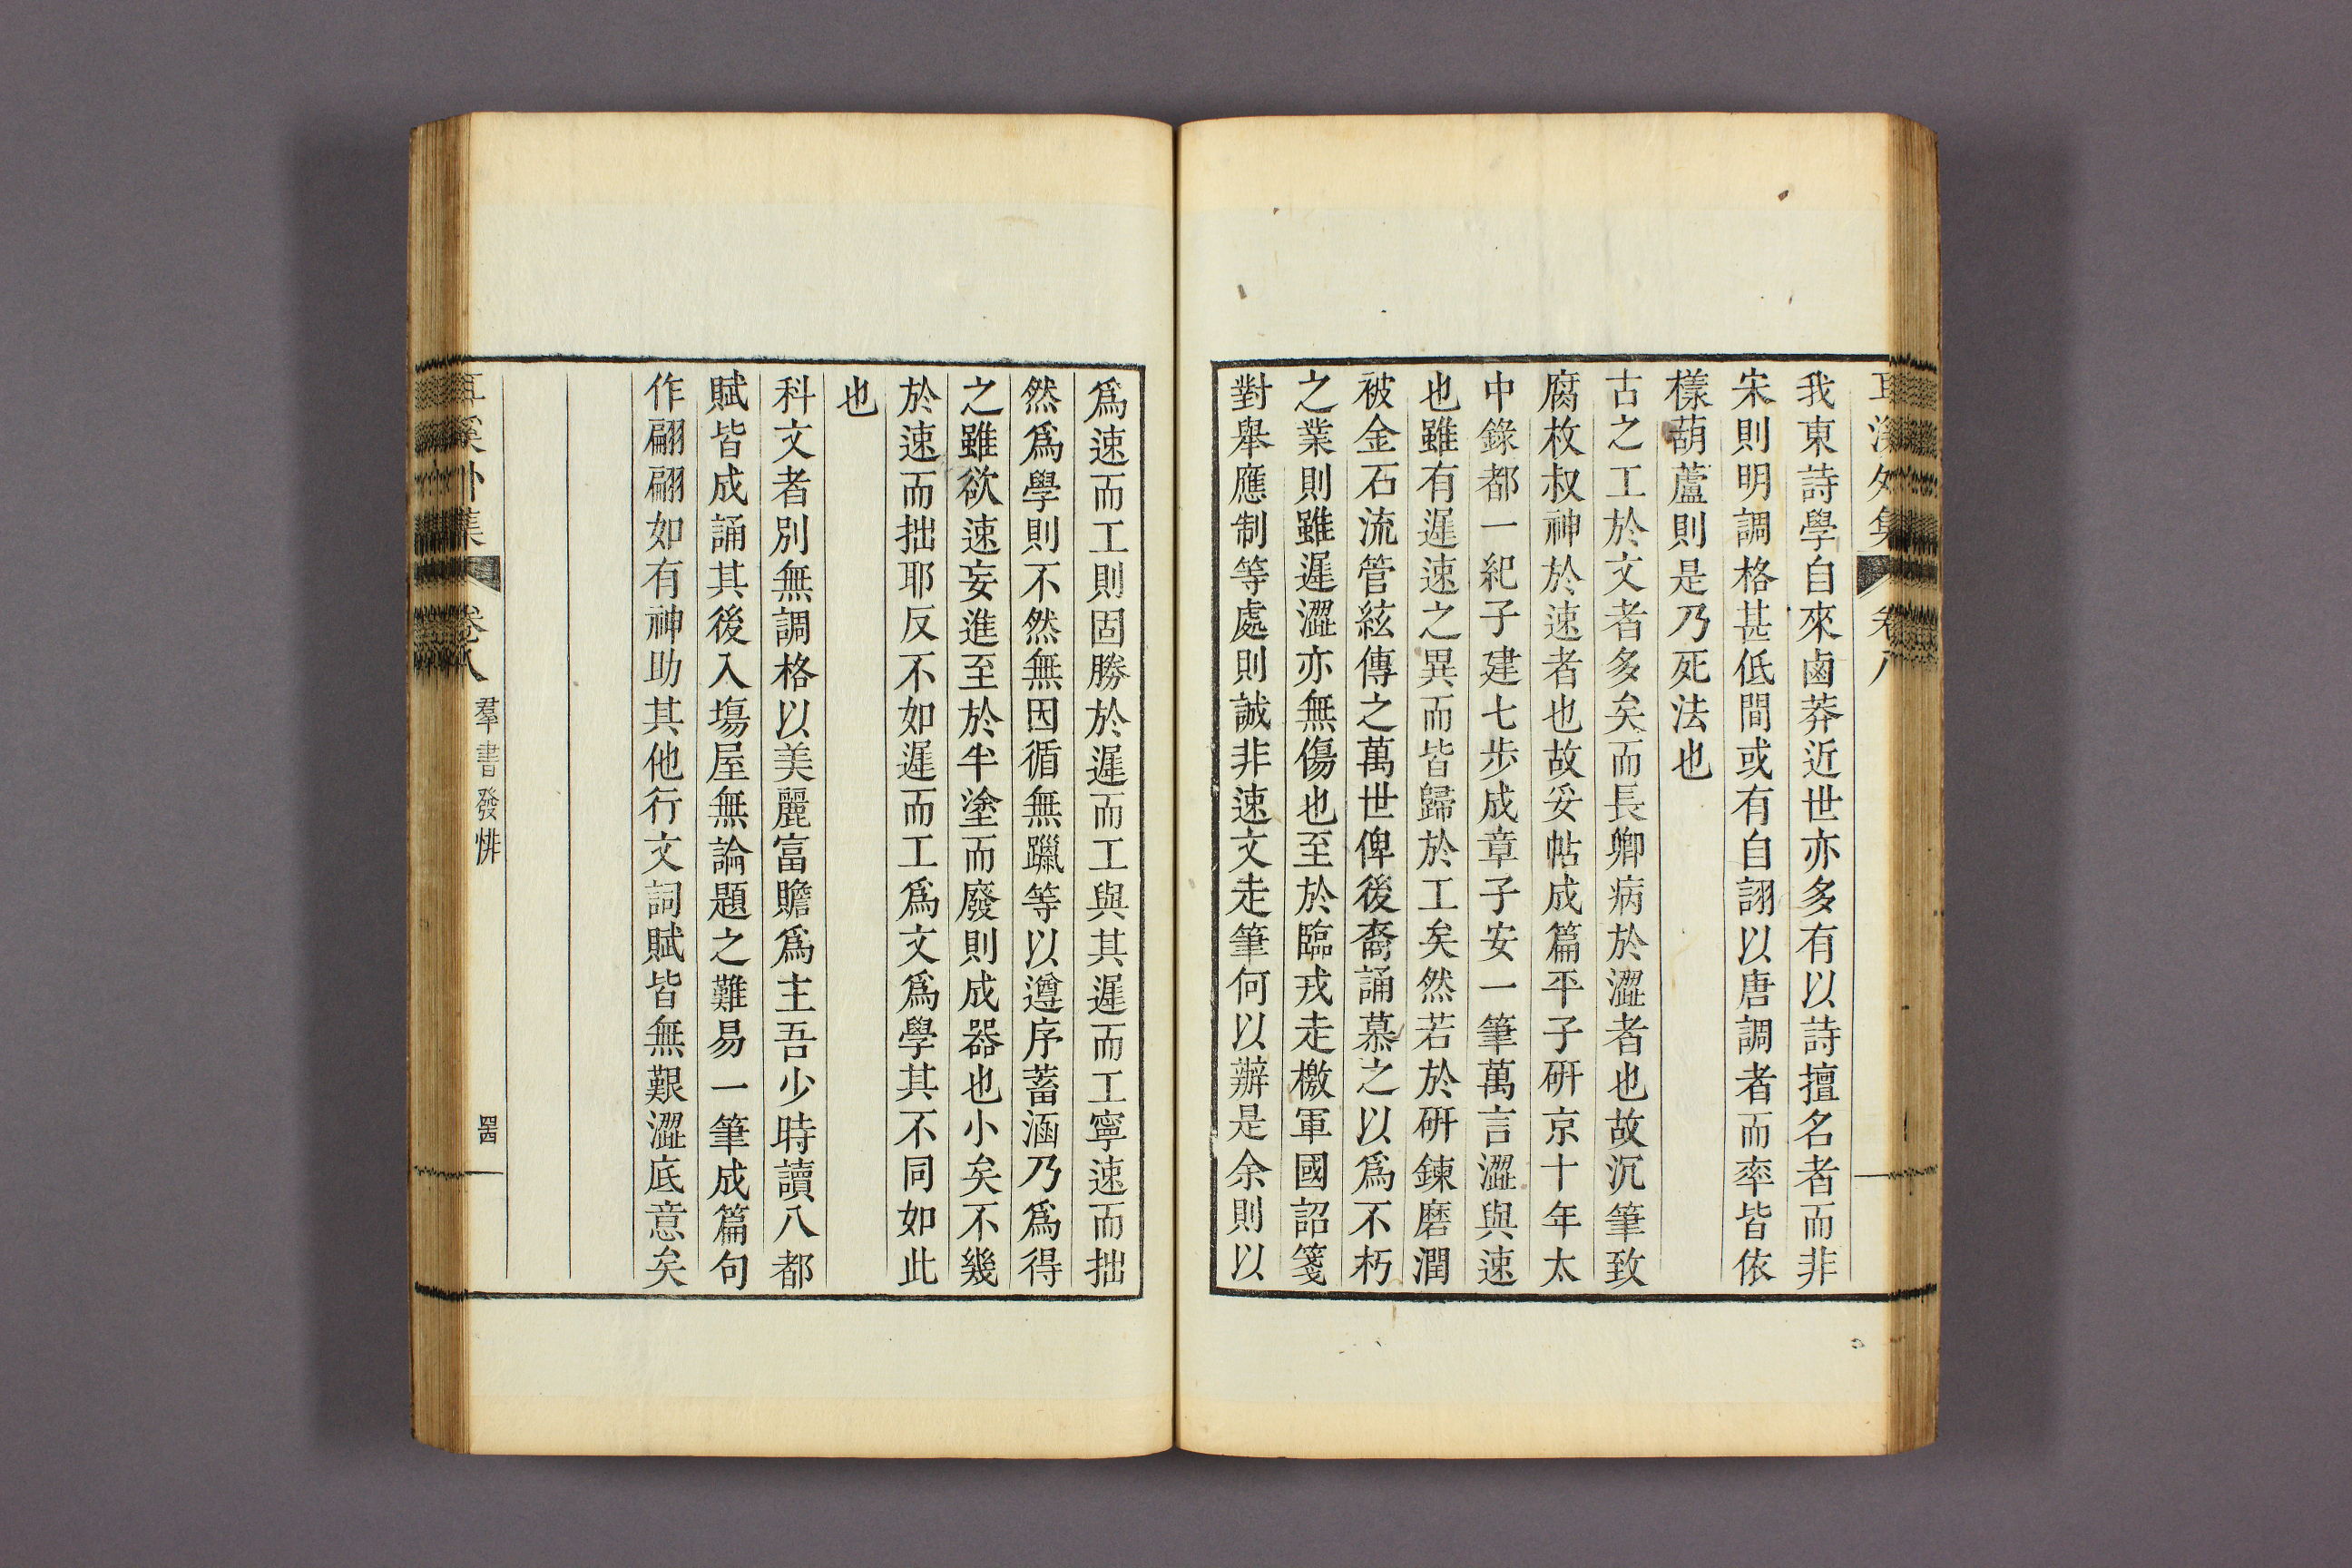 耳溪外集 卷八
我東詩學自來鹵莽近世亦多有以詩擅名者而非
宋則明調格甚低間或有自詡以唐調者而率皆依
樣葫蘆則是乃死法也
古之工於文者多矣而長卿病於澀者也故沉筆致
腐枚叔神於速者也故妥帖成篇平子硏京十年太
中錄都一紀子建七步成章子安一筆萬言澀與速
也雖有遲速之異而皆歸於工矣然若於硏鍊磨潤
被金石流管絃傳之萬世俾後裔誦慕之以爲不朽
之業則雖遲澀亦無傷也至於臨戎走檄軍國詔箋
對舉應制等處則誠非速文走筆何以辦是余則以
爲速而工則固勝於遲而工與其遲而工寧速而拙
然爲學則不然無因循無躐等以遵序蓄涵乃爲得
之雖欲速妄進至於半塗而廢則成器也小矣不幾
於速而拙耶反不如遲而工爲文爲學其不同如此
也
科文者別無調格以美麗富贍爲主吾少時讀八都
賦皆成誦其後入塲屋無論題之難易一筆成篇句
作翩翩如有神助其他行文詞賦皆無艱澀底意矣
耳溪外集 卷八 羣書發悱 四十四